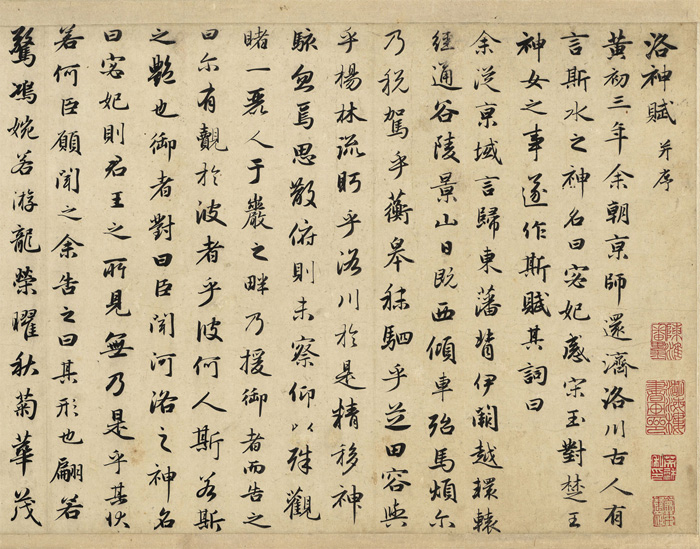 洛神賦 并序
黄初三年余朝京師還濟洛川古人有
言斯水之神名曰宓妃感宋玉對楚王
神女之事遂作斯賦其詞曰
余從京域言歸東藩背伊闕越轘轅
經通谷陵景山日既西傾車殆馬煩尓
乃稅駕乎蘅皋秣駟乎芝田容與
乎楊林流眄乎洛川於是精移神
駭忽焉思散俯則未察仰以殊觀
睹一麗人于巖之畔乃援御者而告之
曰尓有覿於彼者乎彼何人斯若斯
之艷也御者對曰臣聞河洛之神名
曰宓妃則君王之所見無乃是乎其狀
若何臣願聞之余告之曰其形也翩若
驚鴻婉若游龍榮曜秋菊華茂